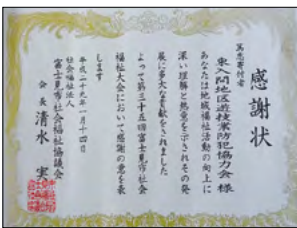 感謝状
篤志寄付者
東入間地区遊技業防犯協力会 様
あなたは地域福祉活動の向上に
深い理解と熱意を示されその発
展に多大な貢献をされました
よって第三十五回富士見市社会
福祉大会において感謝の意を表
します
平成二十九年一月十四日
社会福祉法人
富士見市社会福祉協議会
会長 清水 実